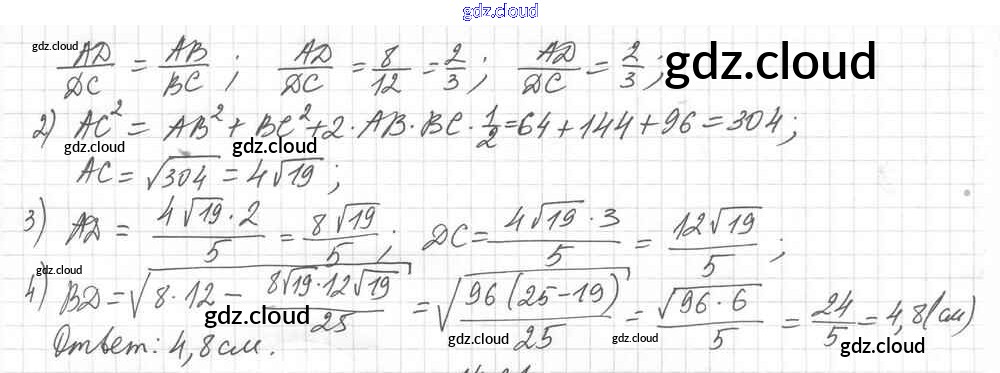 gdz.cloud
gdz.cloud
AD/DC = AB/BC ; AD/DC = 8/12 = 2/3 ; AD/DC = 2/3 ;
gdz.cloud
2) AC² = AB² + BC² + 2·AB·BC·1/2 = 64 + 144 + 96 = 304;
gdz.cloud
gdz.cloud
gdz.cloud
AC = √304 = 4√19 ;
3) AD = 4√19·2/5 = 8√19/5 ; DC = 4√19·3/5 = 12√19/5 ;
gdz.cloud
4) BD = √(8·12 − 8√19·12√19/25) = √(96(25−19)/25) = √(96·6)/5 = 24/5 = 4,8 (см)
gdz.cloud
gdz.cloud
gdz.cloud
Ответ: 4,8 см.